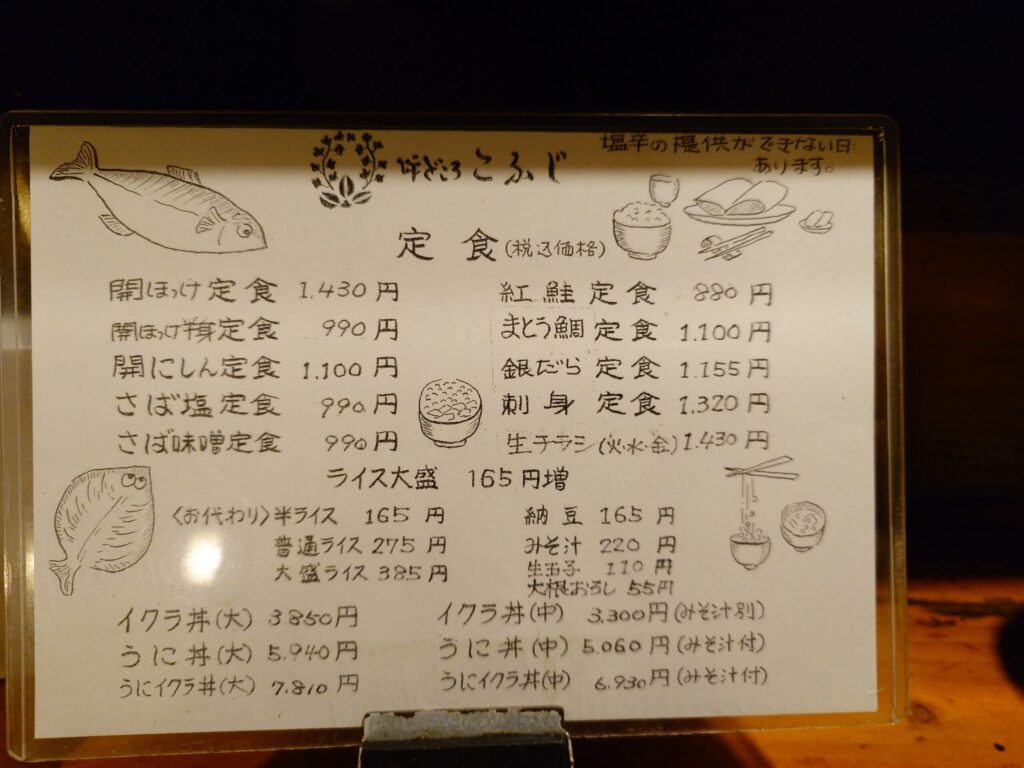 味どころ こふじ
塩辛の提供ができない日
あります。
定食(税込価格)
開ほっけ定食 1.430円
開ほっけ半身定食 990円
開にしん定食 1.100円
さば塩定食 990円
さば味噌定食 990円
紅鮭定食 880円
まとう鯛定食 1.100円
銀だら定食 1.155円
刺身定食 1.320円
生チラシ(火・水・金) 1.430円
ライス大盛 165円増
〈お代わり〉半ライス 165円
普通ライス 275円
大盛ライス 385円
納豆 165円
みそ汁 220円
生玉子 110円
大根おろし 55円
イクラ丼(大) 3.850円
うに丼(大) 5.940円
うにイクラ丼(大) 7.810円
イクラ丼(中) 3.300円(みそ汁別)
うに丼(中) 5.060円(みそ汁付)
うにイクラ丼(中) 6.930円(みそ汁付)